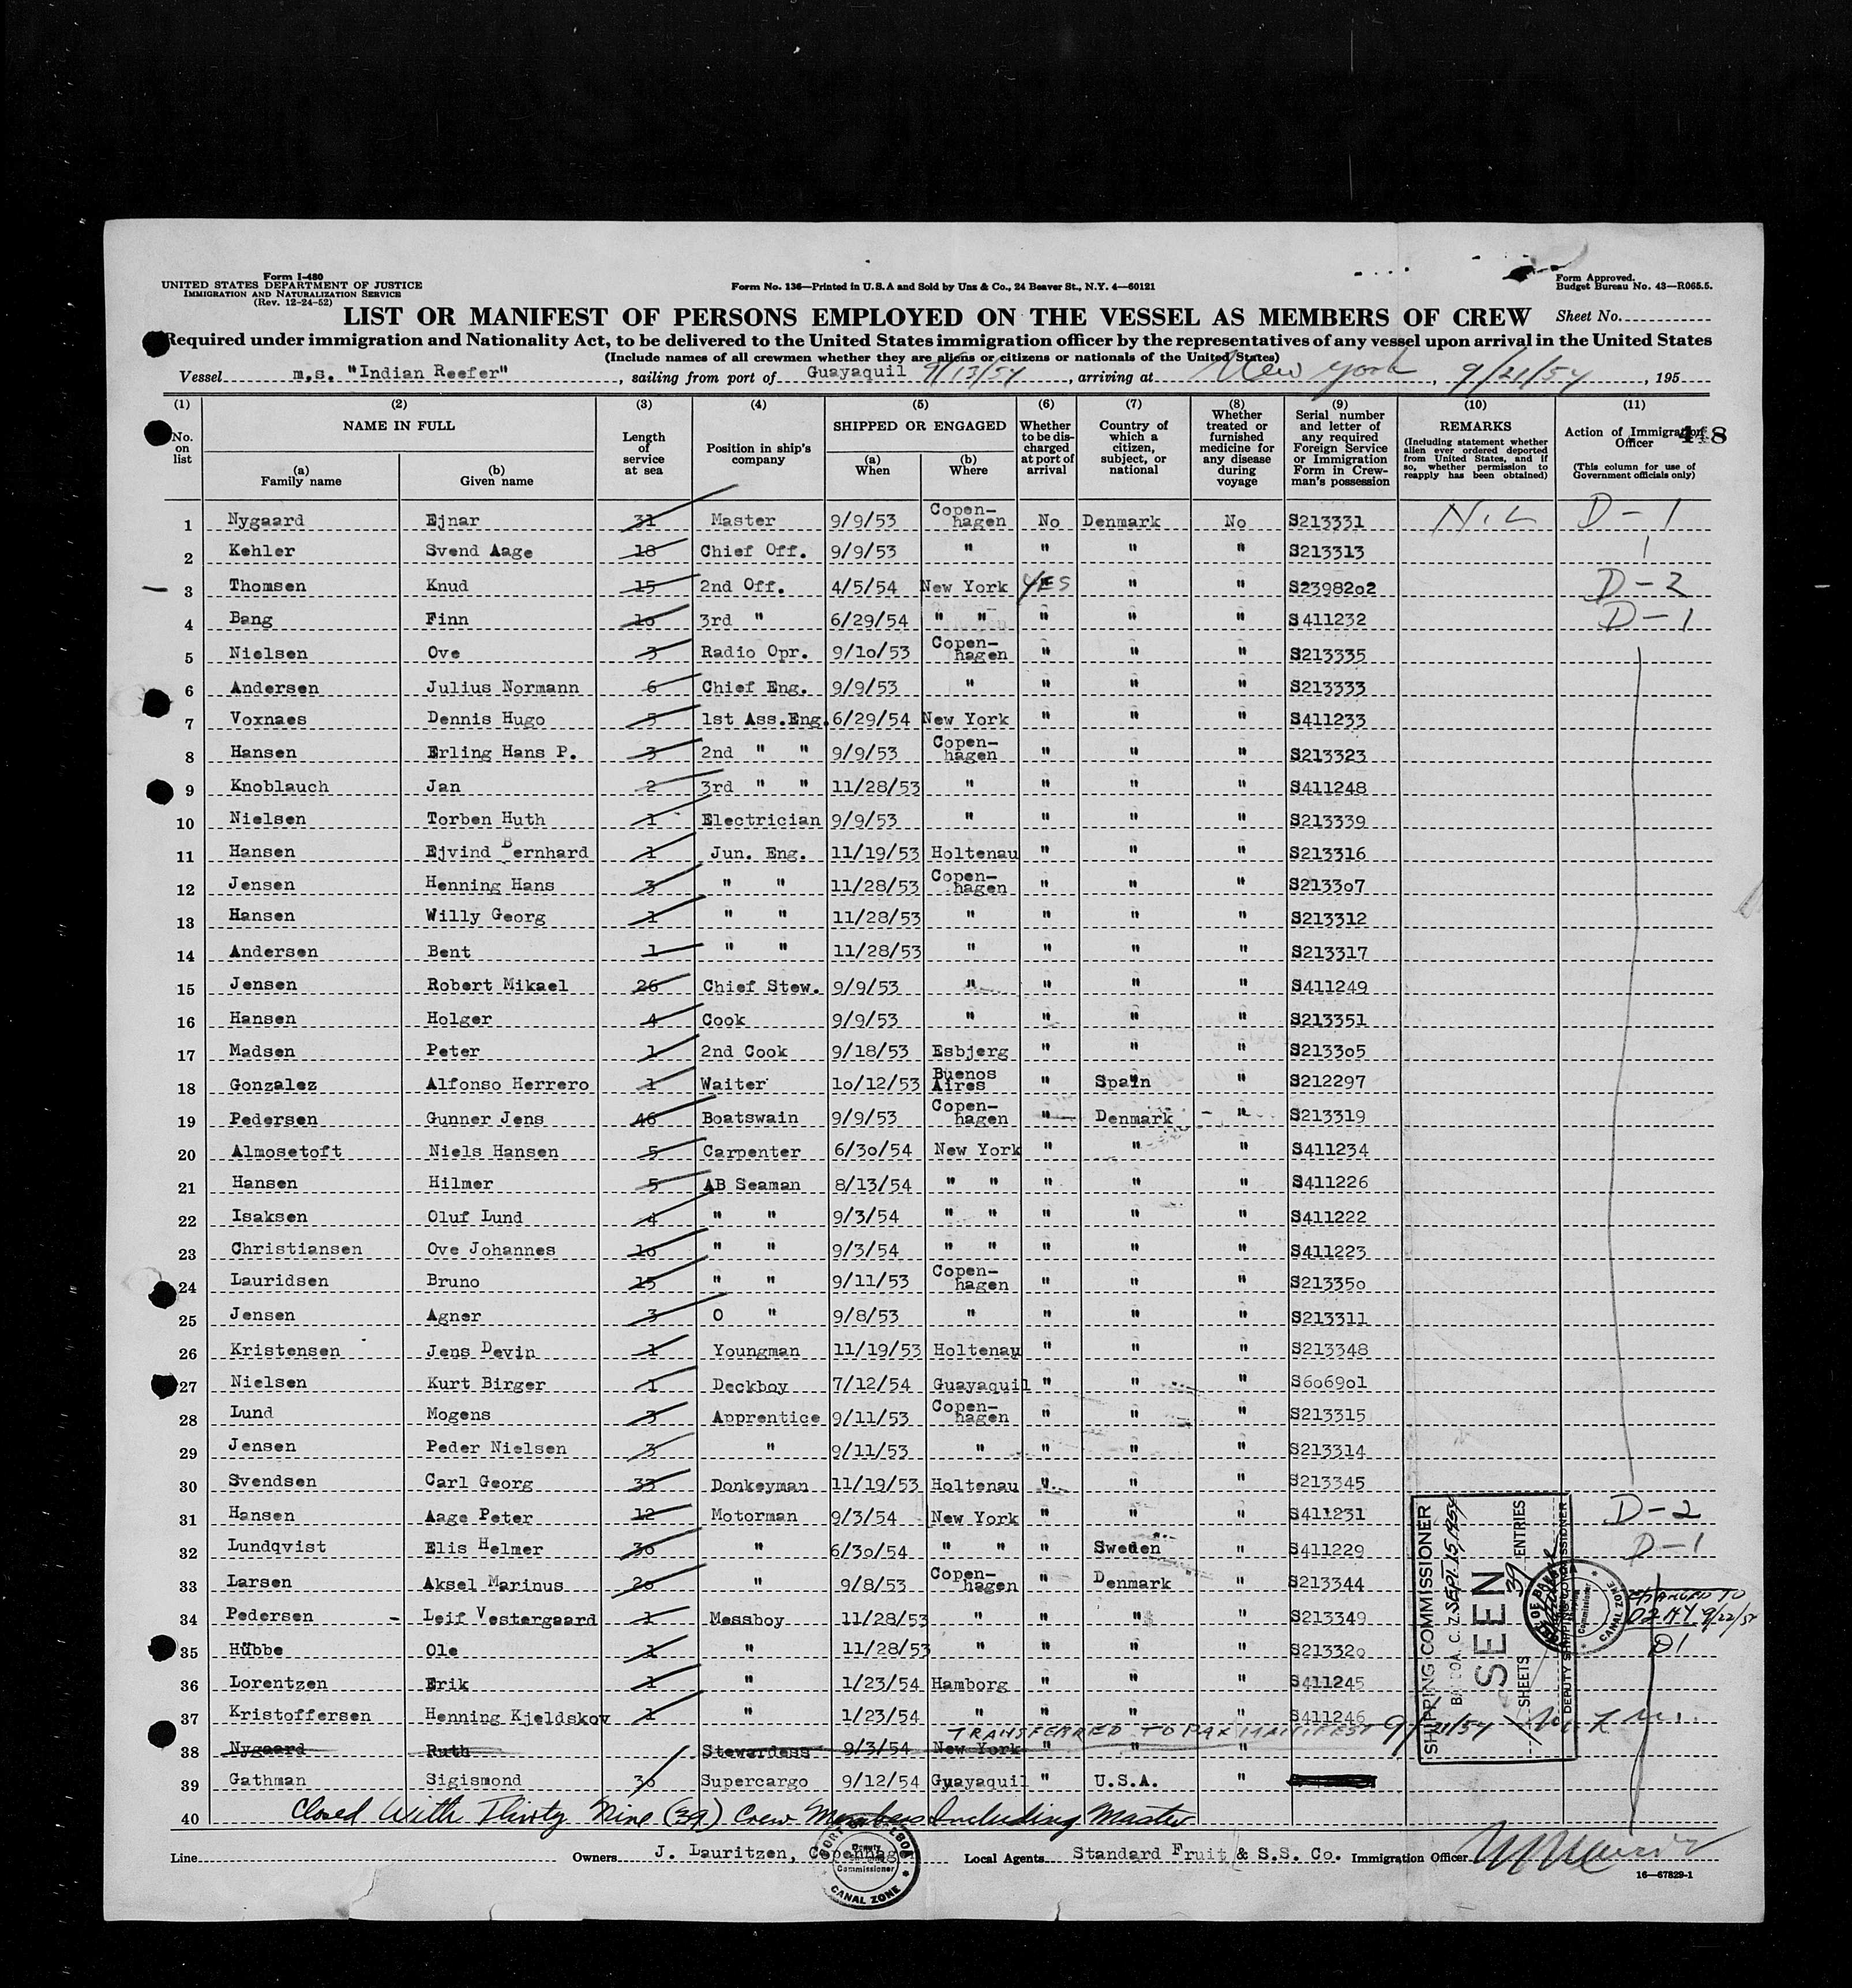 Form I-480
UNITED STATES DEPARTMENT OF JUSTICE
IMMIGRATION AND NATURALIZATION SERVICE
(Rev. 12-24-52)
Form No. 136—Printed in U.S.A and Sold by Unz & Co., 24 Beaver St., N.Y. 4—60121
Form Approved.
Budget Bureau No. 43—R065.5.
LIST OR MANIFEST OF PERSONS EMPLOYED ON THE VESSEL AS MEMBERS OF CREW
Sheet No.
Required under immigration and Nationality Act, to be delivered to the United States immigration officer by the representatives of any vessel upon arrival in the United States
(Include names of all crewmen whether they are aliens or citizens or nationals of the United States)
Vessel m.s. "Indian Reefer", sailing from port of Guayaquil 9/13/54, arriving at New York, 9/21/54, 195
(1) No. on list
(2) NAME IN FULL
(a) Family name
(b) Given name
(3) Length of service at sea
(4) Position in ship's company
(5) SHIPPED OR ENGAGED
(a) When
(b) Where
(6) Whether to be discharged at port of arrival
(7) Country of which a citizen, subject, or national
(8) Whether treated or furnished medicine for any disease during voyage
(9) Serial number and letter of any required Foreign Service or Immigration Form in Crewman's possession
(10) REMARKS
(Including statement whether alien ever ordered deported from United States, and if so, whether permission to reapply has been obtained)
(11) Action of Immigration Officer
(This column for use of Government officials only)
448
1 Nygaard Ejnar 31 Master 9/9/53 Copen-hagen No Denmark No S213331 NIL D-1
2 Kehler Svend Aage 18 Chief Off. 9/9/53 " " " " S213313 1
3 Thomsen Knud 15 2nd Off. 4/5/54 New York YES " " S2398202 D-2
4 Bang Finn 10 3rd " 6/29/54 " " " " " S411232 D-1
5 Nielsen Ove 3 Radio Opr. 9/10/53 Copen-hagen " " " S213335
6 Andersen Julius Normann 6 Chief Eng. 9/9/53 " " " " S213333
7 Voxnaes Dennis Hugo 5 1st Ass.Eng. 6/29/54 New York " " " S411233
8 Hansen Erling Hans P. 3 2nd " " 9/9/53 Copen-hagen " " " S213323
9 Knoblauch Jan 2 3rd " " 11/28/53 " " " " S411248
10 Nielsen Torben Huth 1 Electrician 9/9/53 " " " " S213339
11 Hansen Ejvind Bernhard 1 Jun. Eng. 11/19/53 Holtenau " " " S213316
12 Jensen Henning Hans 3 " " 11/28/53 Copen-hagen " " " S213307
13 Hansen Willy Georg 1 " " 11/28/53 " " " " S213312
14 Andersen Bent 1 " " 11/28/53 " " " " S213317
15 Jensen Robert Mikael 26 Chief Stew. 9/9/53 " " " " S411249
16 Hansen Holger 4 Cook 9/9/53 " " " " S213351
17 Madsen Peter 1 2nd Cook 9/18/53 Esbjerg " " " S213305
18 Gonzalez Alfonso Herrero 1 Waiter 10/12/53 Buenos Aires " Spain " S212297
19 Pedersen Gunner Jens 46 Boatswain 9/9/53 Copen-hagen " Denmark " S213319
20 Almosetoft Niels Hansen 5 Carpenter 6/30/54 New York " " " S411234
21 Hansen Hilmer 5 AB Seaman 8/13/54 " " " " " S411226
22 Isaksen Oluf Lund 4 " " 9/3/54 " " " " " S411222
23 Christiansen Ove Johannes 10 " " 9/3/54 " " " " " S411223
24 Lauridsen Bruno 15 " " 9/11/53 Copen-hagen " " " S213350
25 Jensen Agner 3 O " 9/8/53 " " " " S213311
26 Kristensen Jens Devin 1 Youngman 11/19/53 Holtenau " " " S213348
27 Nielsen Kurt Birger 1 Deckboy 7/12/54 Guayaquil " " " S606901
28 Lund Mogens 3 Apprentice 9/11/53 Copen-hagen " " " S213315
29 Jensen Peder Nielsen 3 " 9/11/53 " " " " S213314
30 Svendsen Carl Georg 33 Donkeyman 11/19/53 Holtenau " " " S213345
31 Hansen Aage Peter 12 Motorman 9/3/54 New York " " " S411231 D-2
32 Lundqvist Elis Helmer 30 " 6/30/54 " " " Sweden " S411229 D-1
33 Larsen Aksel Marinus 20 " 9/8/53 Copen-hagen " Denmark " S213344
34 Pedersen - Leif Vestergaard 1 Messboy 11/28/53 " " " " S213349 CHANGED TO D2 NY 9/22/54
35 Hübbe Ole 1 " 11/28/53 " " " " S213320 D1
36 Lorentzen Erik 1 " 1/23/54 Hamborg " " " S411245
37 Kristoffersen Henning Kjeldskov 1 " 1/23/54 " " " " S411246
TRANSFERRED TO PAX MANIFEST 9/21/54
38 Nygaard Ruth Stewardess 9/3/54 New York " " "
39 Gathman Sigismond 30 Supercargo 9/12/54 Guayaquil " U.S.A. "
40 Closed With Thirty Nine (39) Crew Members Including Master
SHIPPING COMMISSIONER
BALBOA, C. Z. SEPT. 15, 1954
SEEN
SHEETS 39 ENTRIES
DEPUTY SHIPPING COMMISSIONER
PORT OF BALBOA
Commissioner
CANAL ZONE
Line
Owners J. Lauritzen, Copenhag
Local Agents Standard Fruit & S.S. Co.
Immigration Officer
PORT OF BALBOA
Deputy
Commissioner
CANAL ZONE
16—67829-1